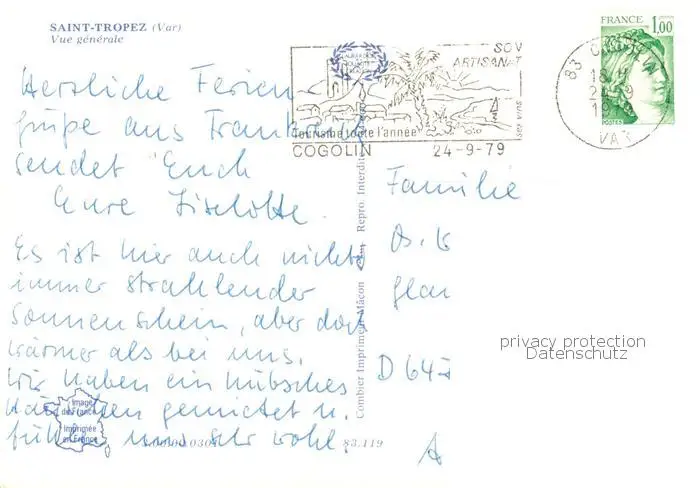 SAINT-TROPEZ (Var)
Vue générale
FRANCE 1,00
POSTES
SON
ARTISANAT
Tourisme toute l'année
COGOLIN 24-9-79
83
18 H
VAR
Herzliche Ferien
grüße aus Frankr
sendet Euch
Eure Liselotte.
Es ist hier auch nicht
immer strahlender
Sonnenschein, aber doch
wärmer als bei uns.
Wir haben ein hübsches
Häuschen gemietet u.
fühlen uns sehr wohl.
Familie
D 64
Combier Imprimeur Mâcon
Repro. Interdite
Image
de France
Imprimée
en France
83.119
privacy protection
Datenschutz